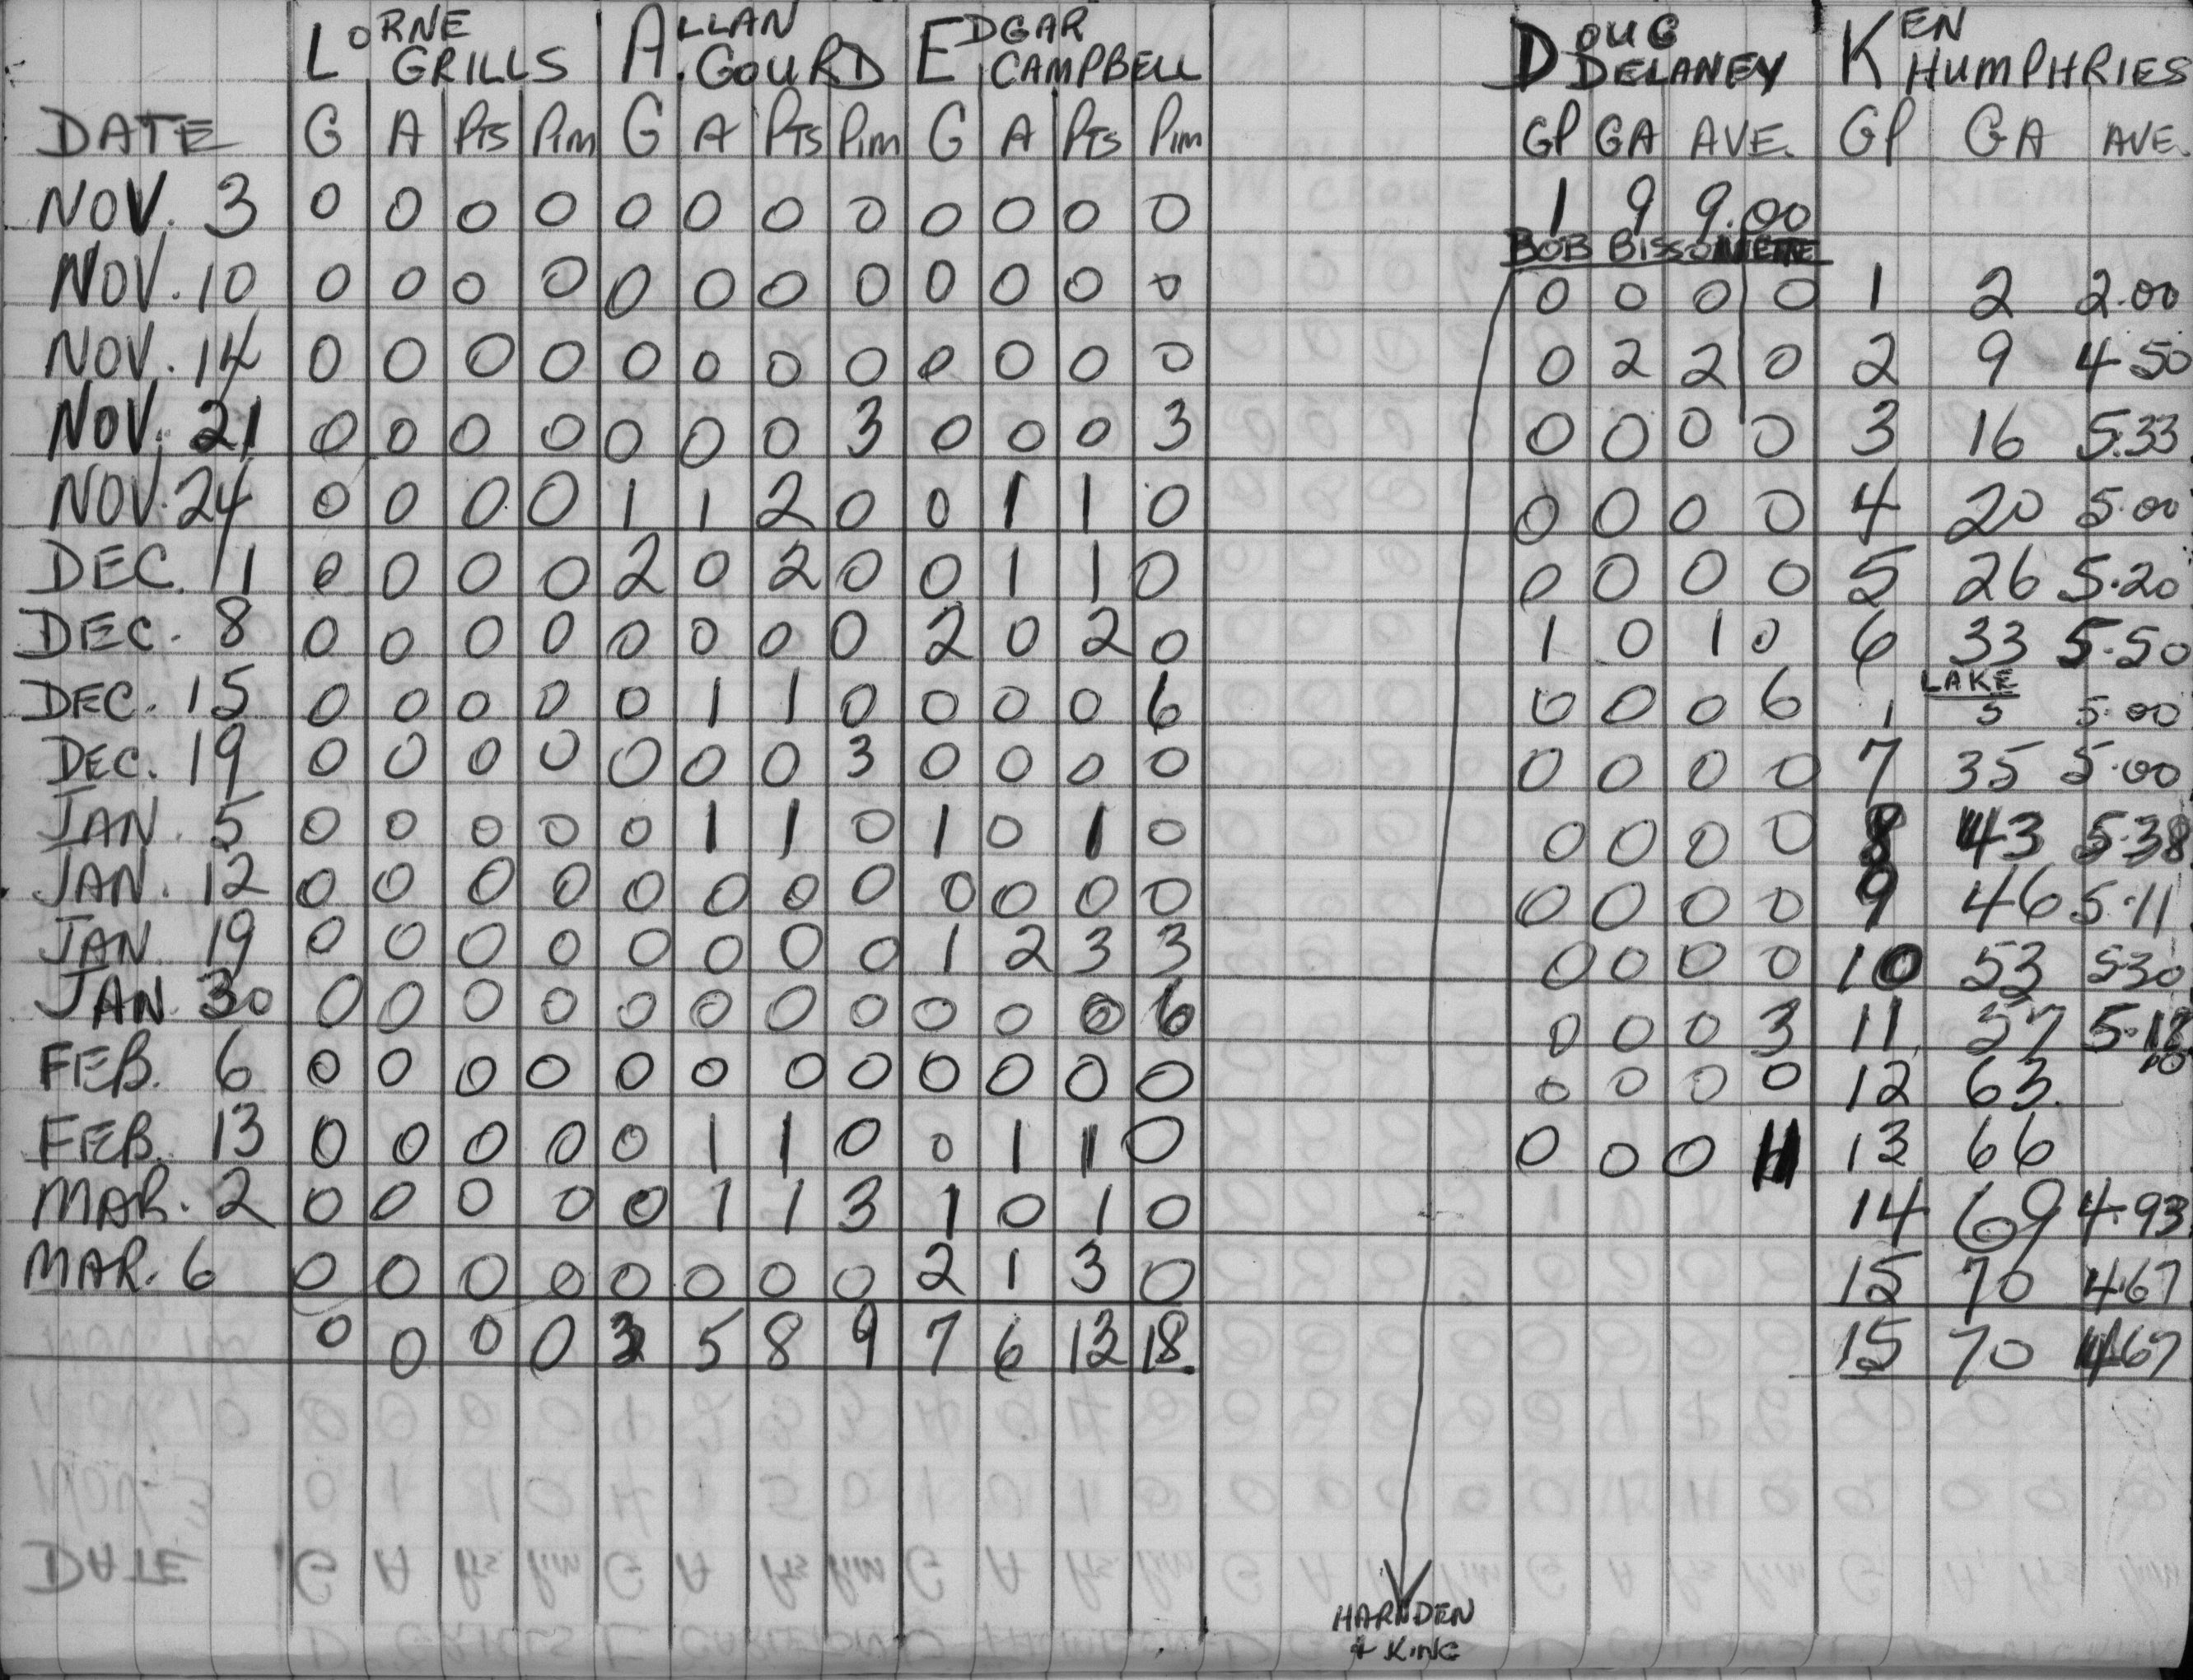 LORNE GRILLS ALLAN GOURD EDGAR CAMPBELL DOUG DELANEY KEN HUMPHRIES
DATE G A PTS PIM G A PTS PIM G A PTS PIM GP GA AVE. GP GA AVE.
NOV. 3 0 0 0 0 0 0 0 0 0 0 0 0 1 9 9.00
BOB BISSONETTE
NOV. 10 0 0 0 0 0 0 0 0 0 0 0 0 0 0 0 0 1 2 2.00
NOV. 14 0 0 0 0 0 0 0 0 0 0 0 0 0 2 2 0 2 9 4.50
NOV. 21 0 0 0 0 0 0 0 3 0 0 0 3 0 0 0 0 3 16 5.33
NOV. 24 0 0 0 0 1 1 2 0 0 1 1 0 0 0 0 0 4 20 5.00
DEC. 1 0 0 0 0 2 0 2 0 0 1 1 0 0 0 0 0 5 26 5.20
DEC. 8 0 0 0 0 0 0 0 0 2 0 2 0 1 0 1 0 6 33 5.50
LAKE
DEC. 15 0 0 0 0 0 1 1 0 0 0 0 6 0 0 0 6 1 5 5.00
DEC. 19 0 0 0 0 0 0 0 3 0 0 0 0 0 0 0 0 7 35 5.00
JAN. 5 0 0 0 0 0 1 1 0 1 0 1 0 0 0 0 0 8 43 5.38
JAN. 12 0 0 0 0 0 0 0 0 0 0 0 0 0 0 0 0 9 46 5.11
JAN. 19 0 0 0 0 0 0 0 0 1 2 3 3 0 0 0 0 10 53 530
JAN 30 0 0 0 0 0 0 0 0 0 0 0 6 0 0 0 3 11 57 5.18
FEB. 6 0 0 0 0 0 0 0 0 0 0 0 0 0 0 0 0 12 63.
FEB. 13 0 0 0 0 0 1 1 0 0 1 1 0 0 0 0 13 66
MAR. 2 0 0 0 0 0 1 1 3 1 0 1 0 14 69 4.93
MAR. 6 0 0 0 0 0 0 0 0 2 1 3 0 15 70 4.67
0 0 0 0 3 5 8 9 7 6 13 18. 15 70 4.67
HARNDEN
& KING